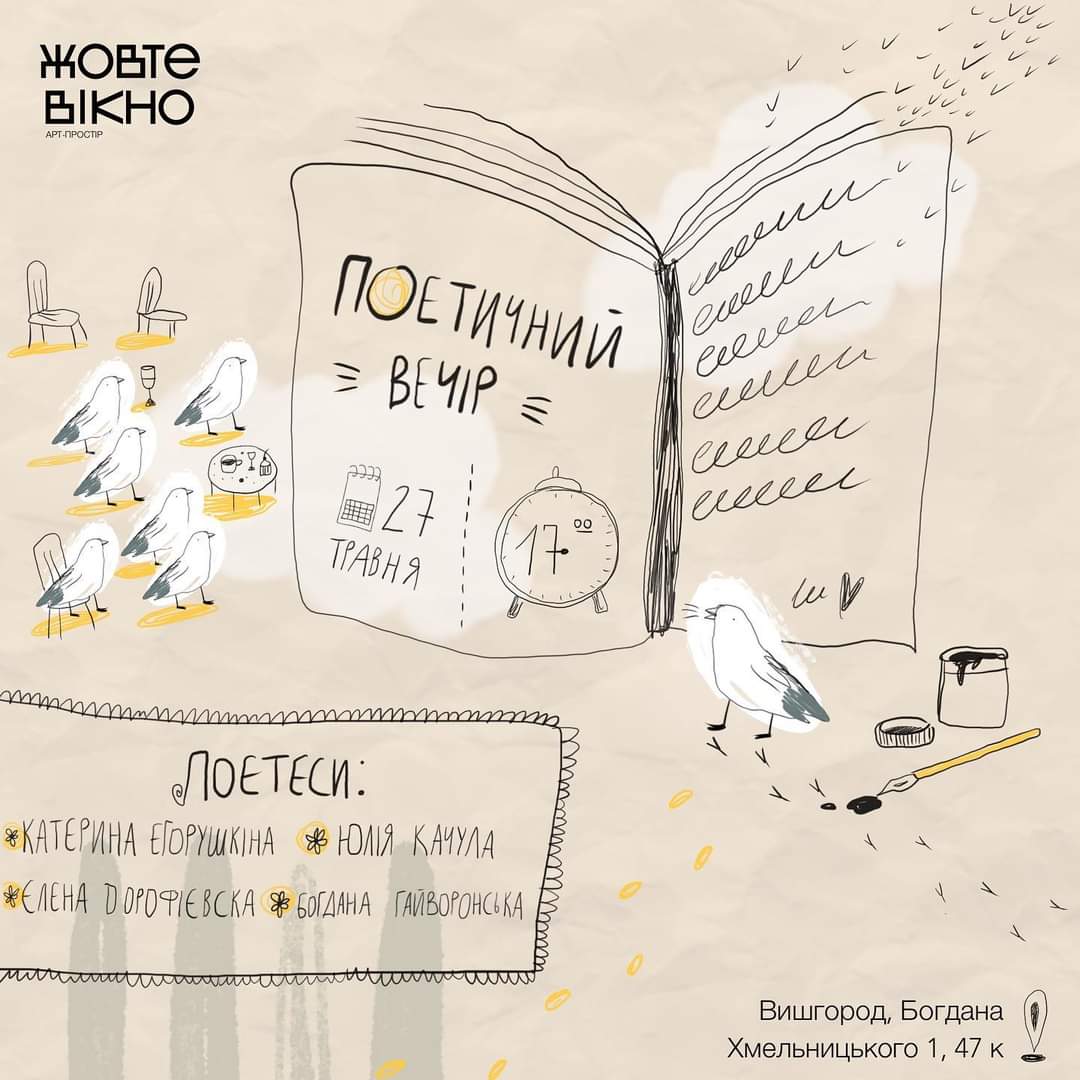 ЖОВТЕ
ВІКНО
АРТ-ПРОСТІР
ПОЕТИЧНИЙ
ВЕЧІР
27
ТРАВНЯ
17 00
ПОЕТЕСИ:
КАТЕРИНА ЄГОРУШКІНА ЮЛІЯ КАЧУЛА
ЄЛЕНА ДОРОФІЄВСКА БОГДАНА ГАЙВОРОНСЬКА
Вишгород, Богдана
Хмельницького 1, 47 к